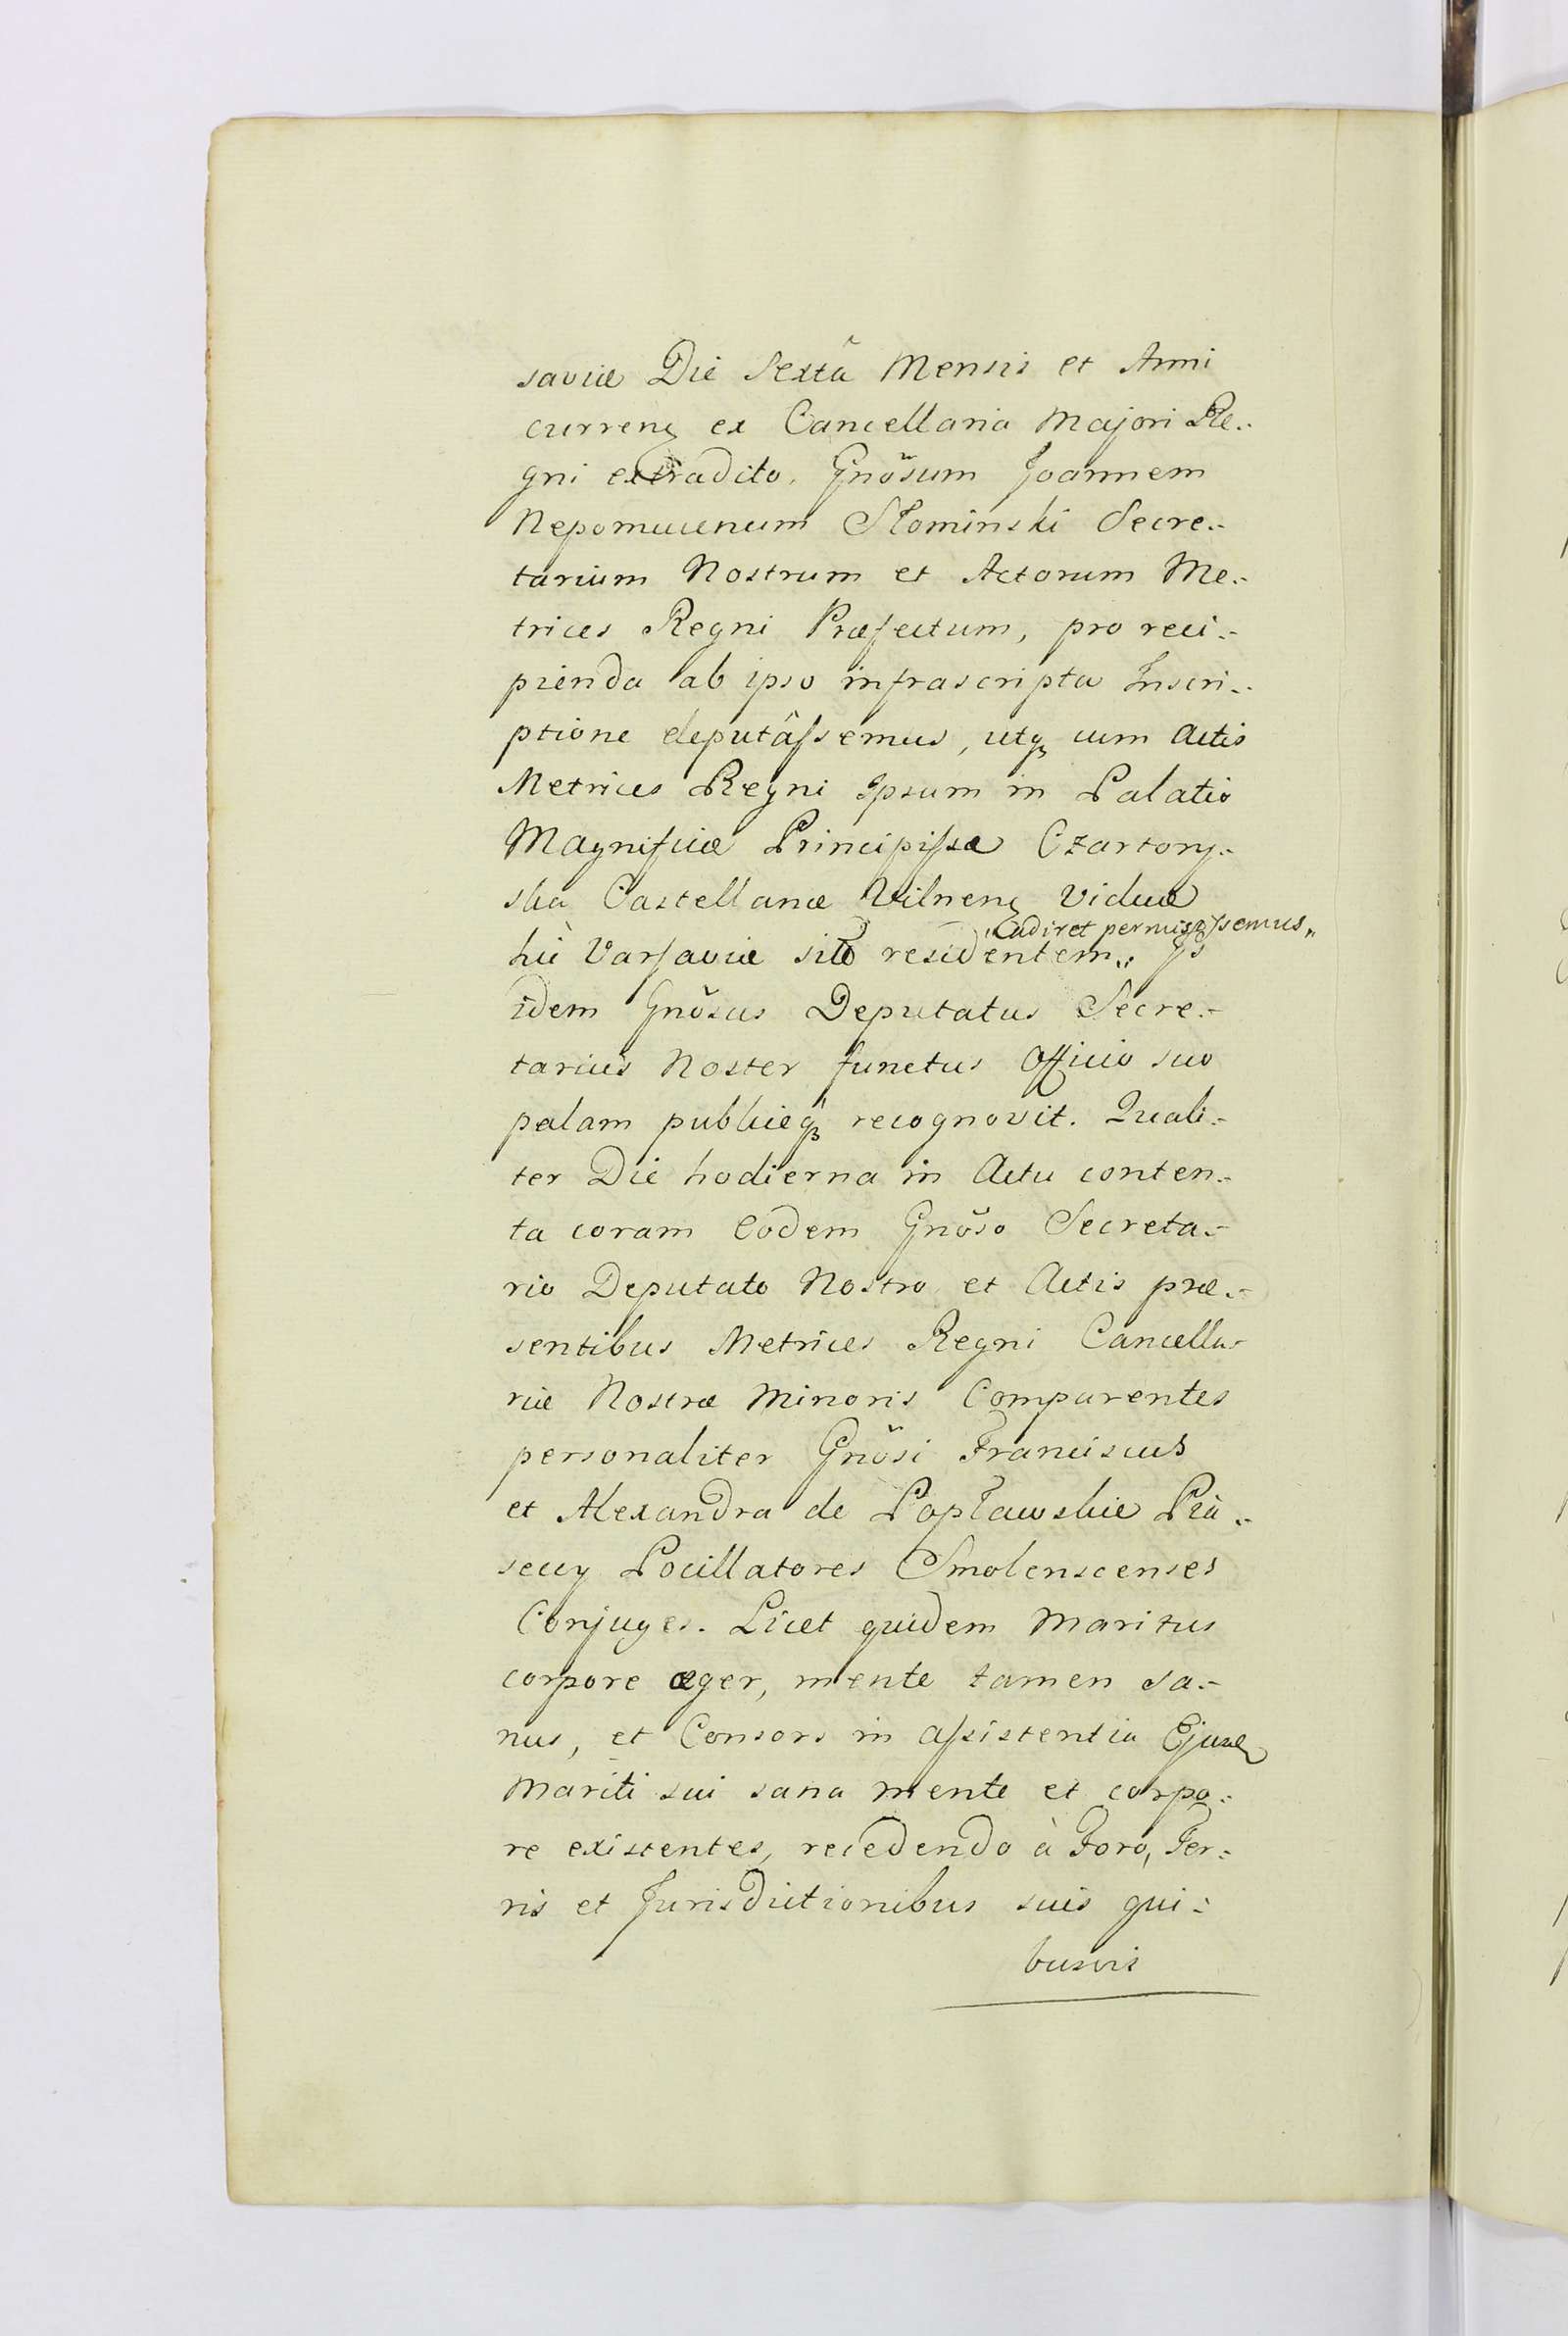 saviæ Die Sextâ Mensis et Anni
curren̨ ex Cancellaria Majori Re-
gni extradito, Gnõsum Joannem
Nepomucenum Słominski Secre-
tarium Nostrum et Actorum Me-
trices Regni Præfectum, pro reci-
pienda ab ipso infrascripta Inscri-
ptione deputâssemus, utq₃ cum Actis
Metrices Regni Ipsum in Palatio
Magnificæ Principissæ Czartory-
ska Castellanæ Vilnen̨ Viduæ
„Audiret permisissemus„
hic Varsaviæ sito residentem„ Is
idem Gnõsus Deputatus Secre-
tarius Noster functus Officio suo
palam publiceq₃ recognovit. Quali-
ter Die hodierna in Actu conten-
ta coram Eodem Gnõso Secreta-
rio Deputato Nostro et Actis præ-
sentibus Metrices Regni Cancella-
riæ Nostræ Minoris Comparentes
personaliter Gnõsi Franciscus
et Alexandra de Popławskie Pia-
seccy Pocillatores Smolenscenses
Conjuges. Licet quidem Maritus
corpore æger, mente tamen sa-
nus, et Consors in assistentia Ejusd̨
Mariti sui sana mente et corpo-
re existentes, recedendo à Foro, Ter-
ris et Jurisdictionibus suis qui-
busvis